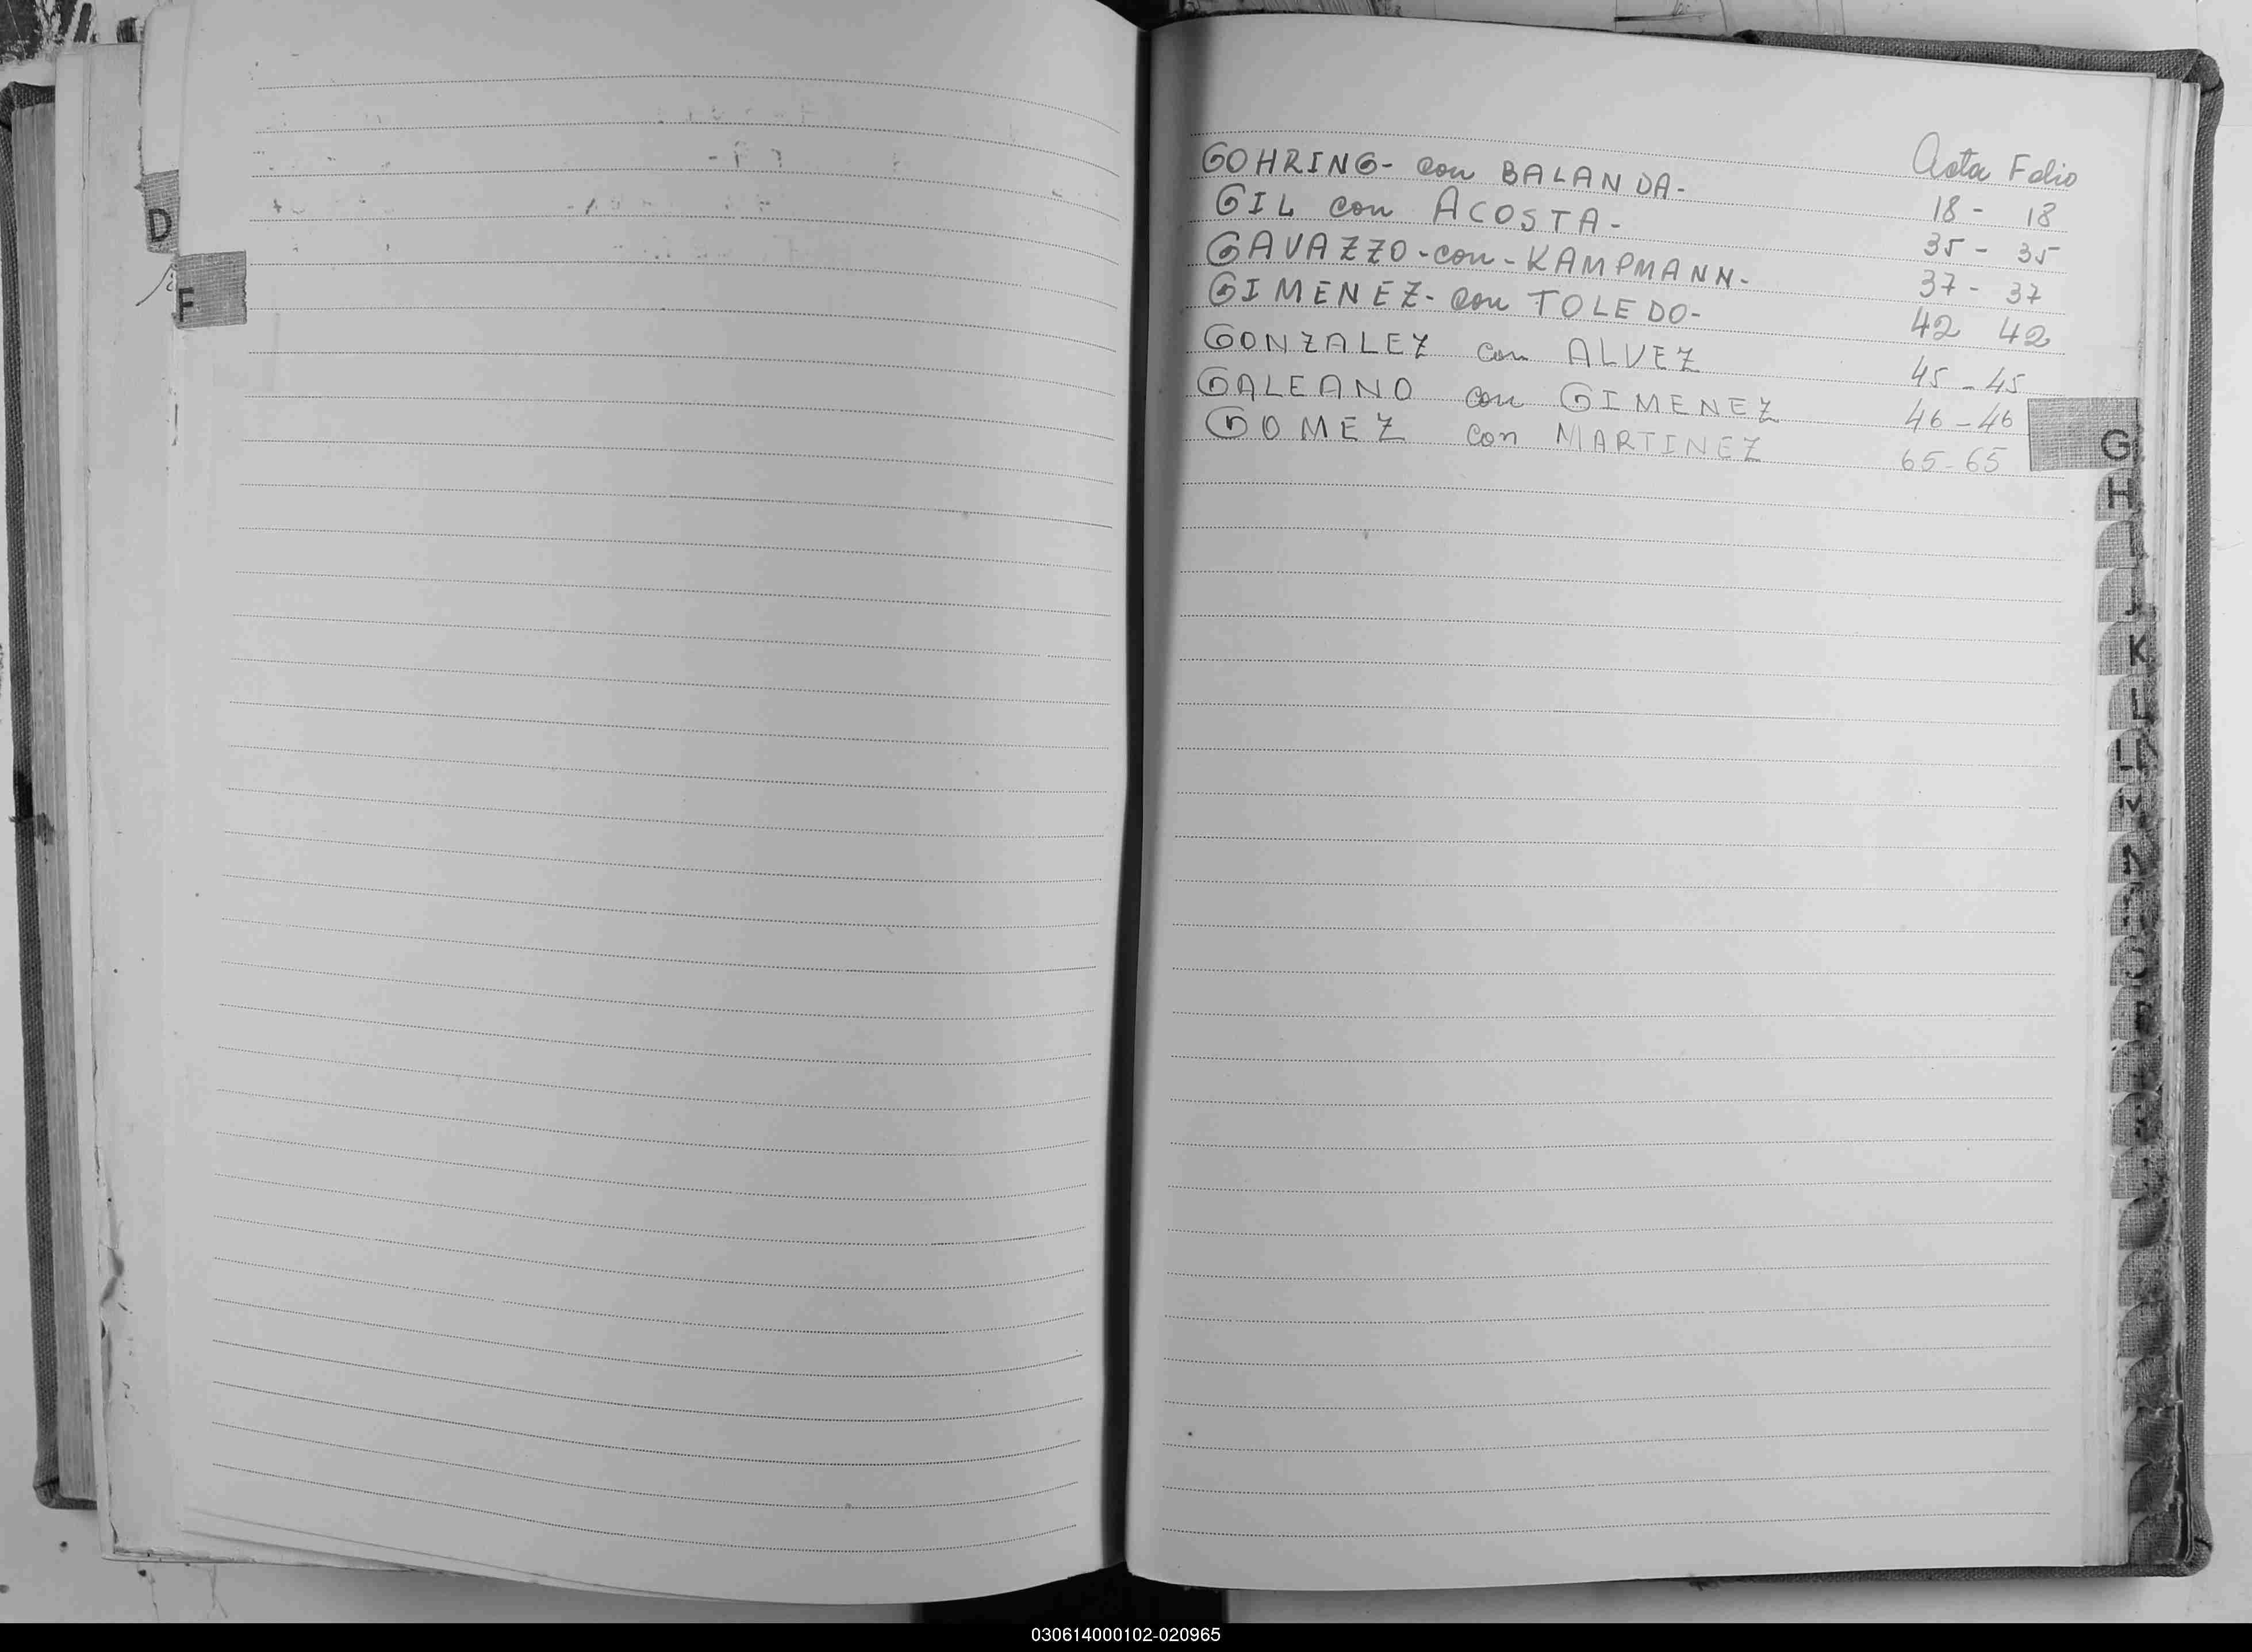 D
F
Acta Folio
GOHRING- con BALANDA- 18 - 18
GIL con ACOSTA- 35 - 35
GAVAZZO-con-KAMPMANN- 37 - 37
GIMENEZ- con TOLEDO- 42 42
GONZALEZ con ALVEZ 45 - 45
GALEANO con GIMENEZ 46 - 46
GOMEZ con MARTINEZ 65 - 65
G
H
I
J
K
L
LL
M
030614000102-020965